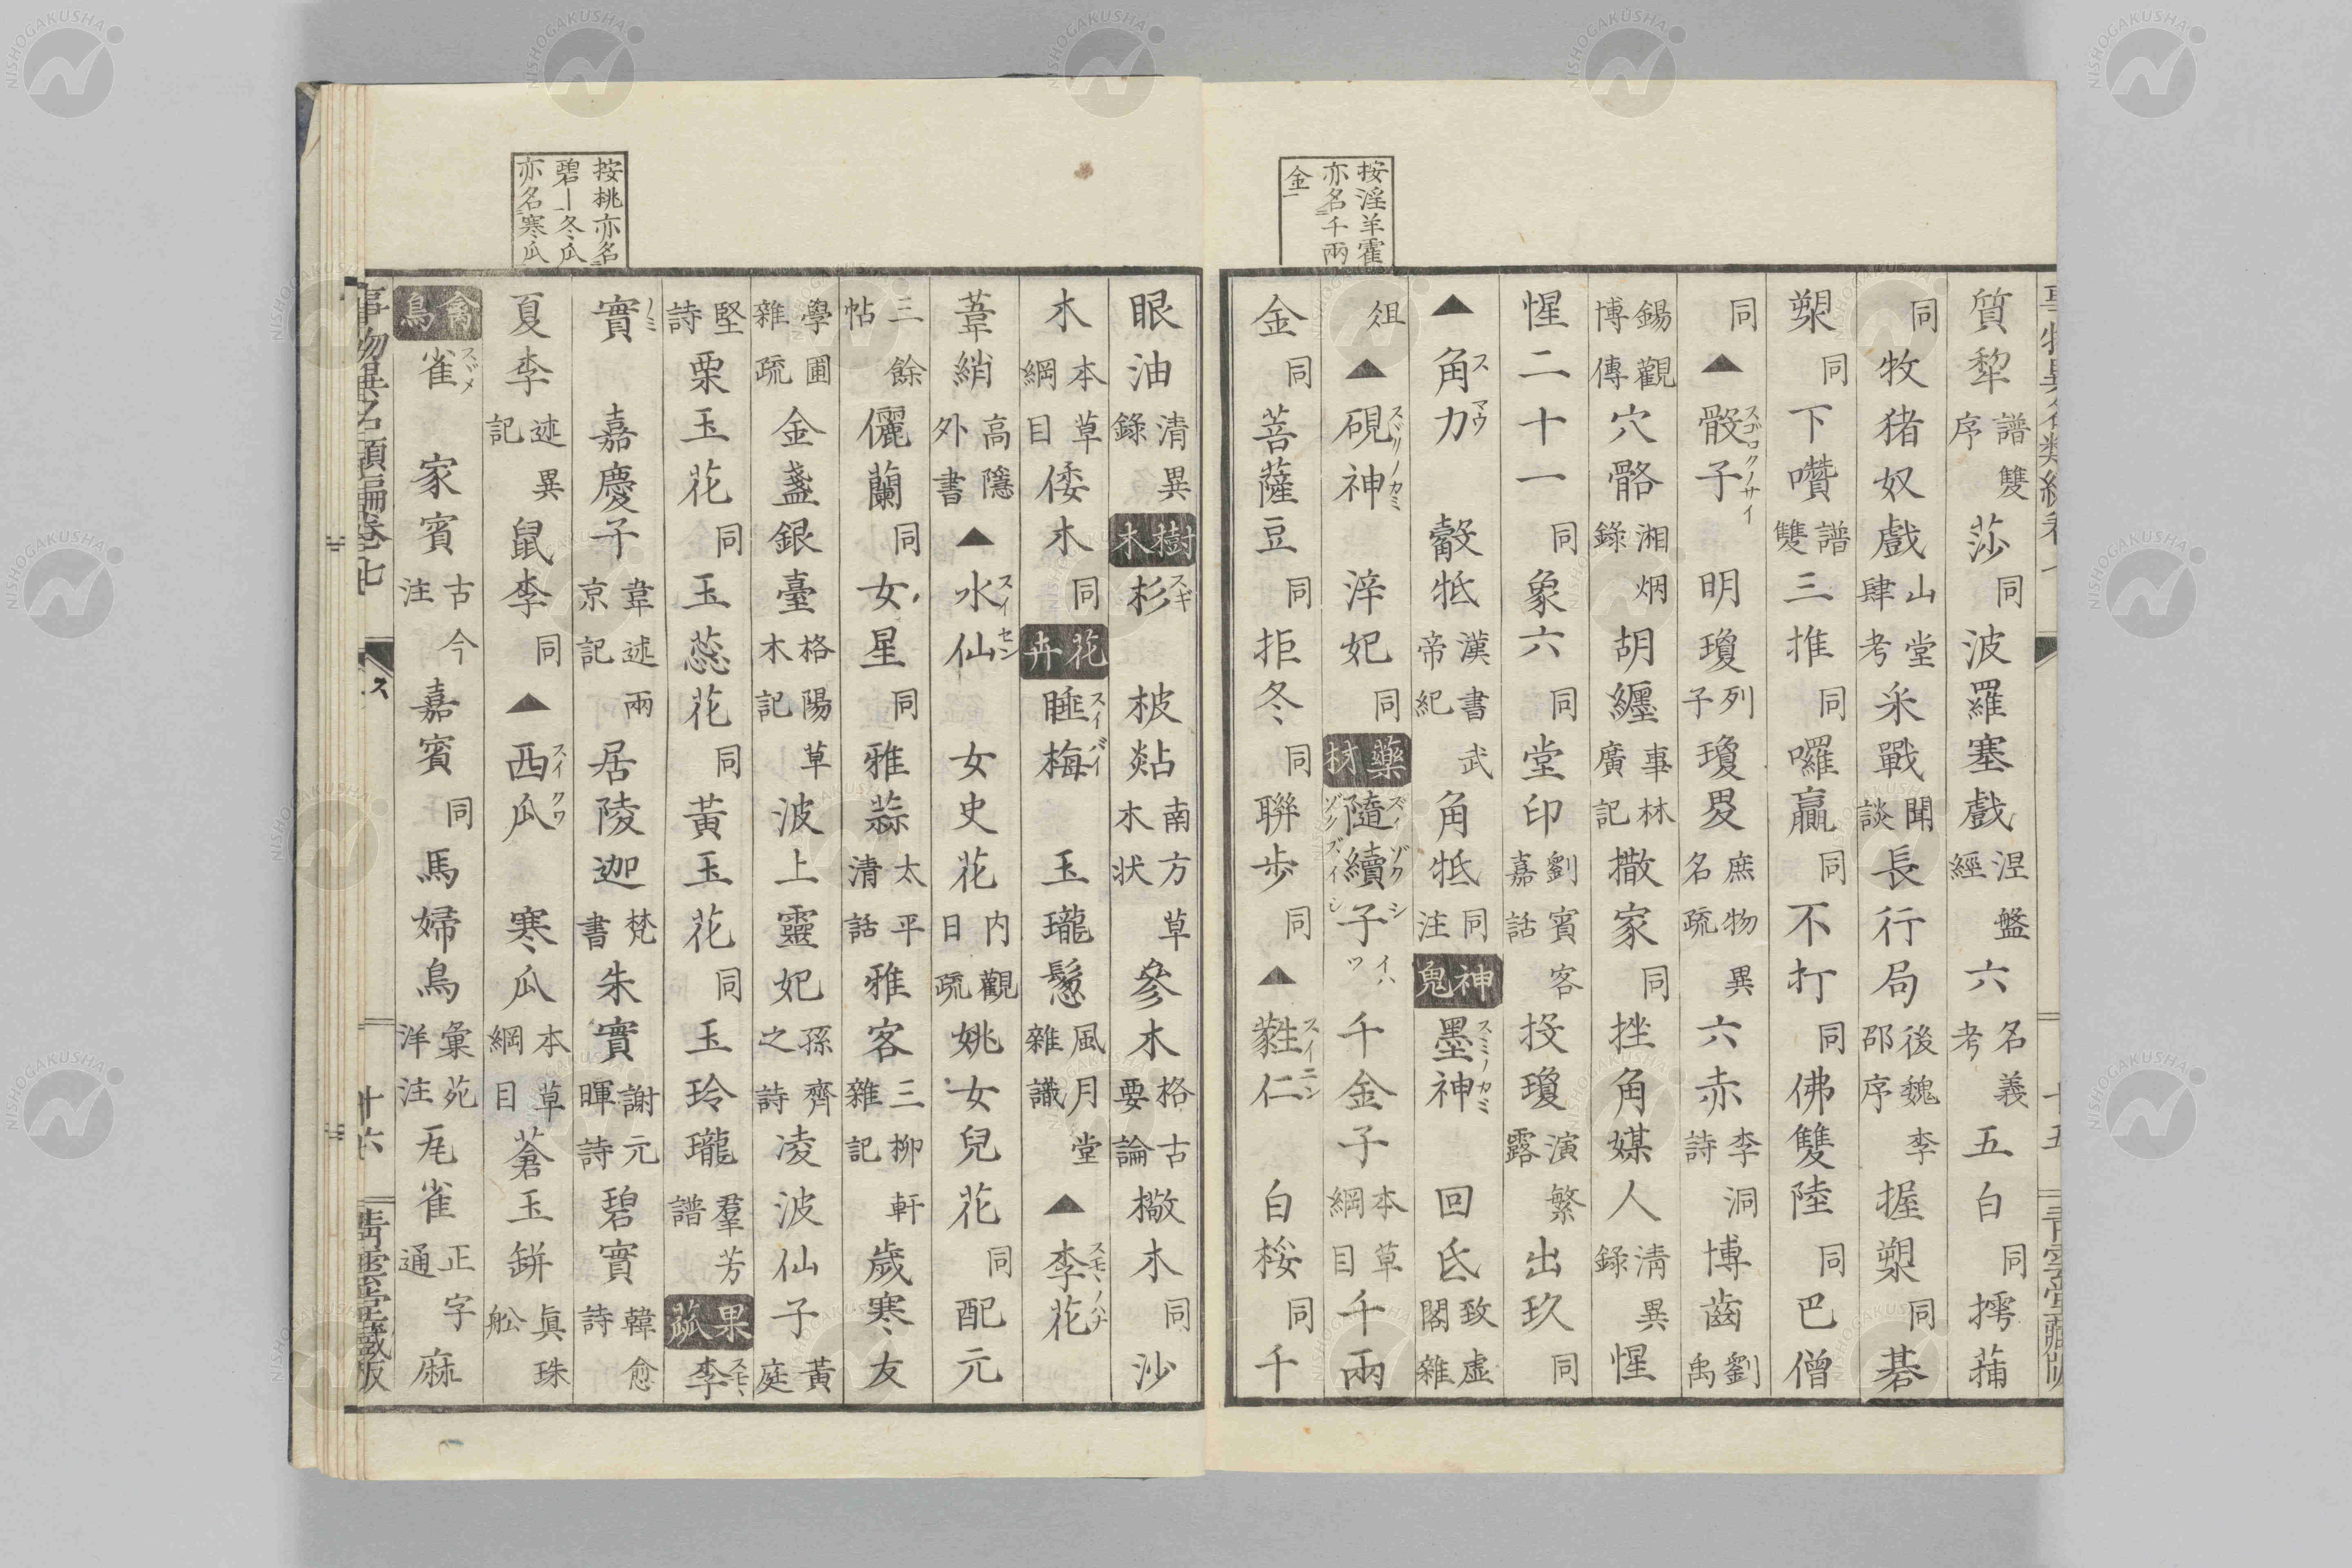 按淫羊藿
亦名千兩
金
質犂譜雙序莎同波羅塞戲涅盤經六名義考五白同摴蒱
同牧猪奴戲山堂肆考釆戰聞談長行局後魏李邵序握槊同碁
槊同下囋譜雙三推同囉贏同不打同佛雙陸同巴僧
同▲骰子スゴロクノサイ明瓊列子瓊畟庶物異名疏六赤李洞詩博齒劉禹
錫觀博傳穴骼湘烟錄胡纒事林廣記撒家同挫角媒人清異錄惺
惺二十一同象六同堂印劉賓客嘉話投瓊演繁露出玖同
▲角力スマウ觳牴漢書武帝紀角牴同注神鬼墨神スミノカミ回氐致虛閣雜
俎▲硯神スヾリノカミ淬妃同藥材隨續子ズイゾクシゾクズイシイハツ千金子本草綱目千兩
金同菩薩豆同拒冬同聯步同▲蕤仁スイニン白桵同千
十五
青雲堂藏版
按桃亦名
碧―冬瓜
亦名寒瓜
眼油清異錄樹木杉スギ柀煔南方草木狀參木格古要論橵木同沙
木本草綱目倭木同花卉睡梅スイバイ玉瓏鬆風月堂雜識▲李花スモヽノハナ
葦綃高隱外書▲水仙スイセン女史花內觀日疏姚女兒花同配元
三餘帖儷蘭同女星同雅蒜太平清話雅客三柳軒雜記歲寒友
學圃雜疏金盞銀臺格陽草木記波上靈妃孫齊之詩凌波仙子黃庭
堅詩栗玉花同玉蕊花同黃玉花同玉玲瓏羣芳譜果蓏李スモヽ
實ノミ嘉慶子韋述兩京記居陵迦梵書朱實謝元暉詩碧實韓愈詩
夏李述異記鼠李同▲西瓜スイクワ寒瓜本草綱目蒼玉缾眞珠舩
禽鳥雀スヾメ家賓古今注嘉賓同馬婦鳥彙苑詳注兎雀正字通麻
事物異名類編卷七
ス
十六
青雲堂藏版